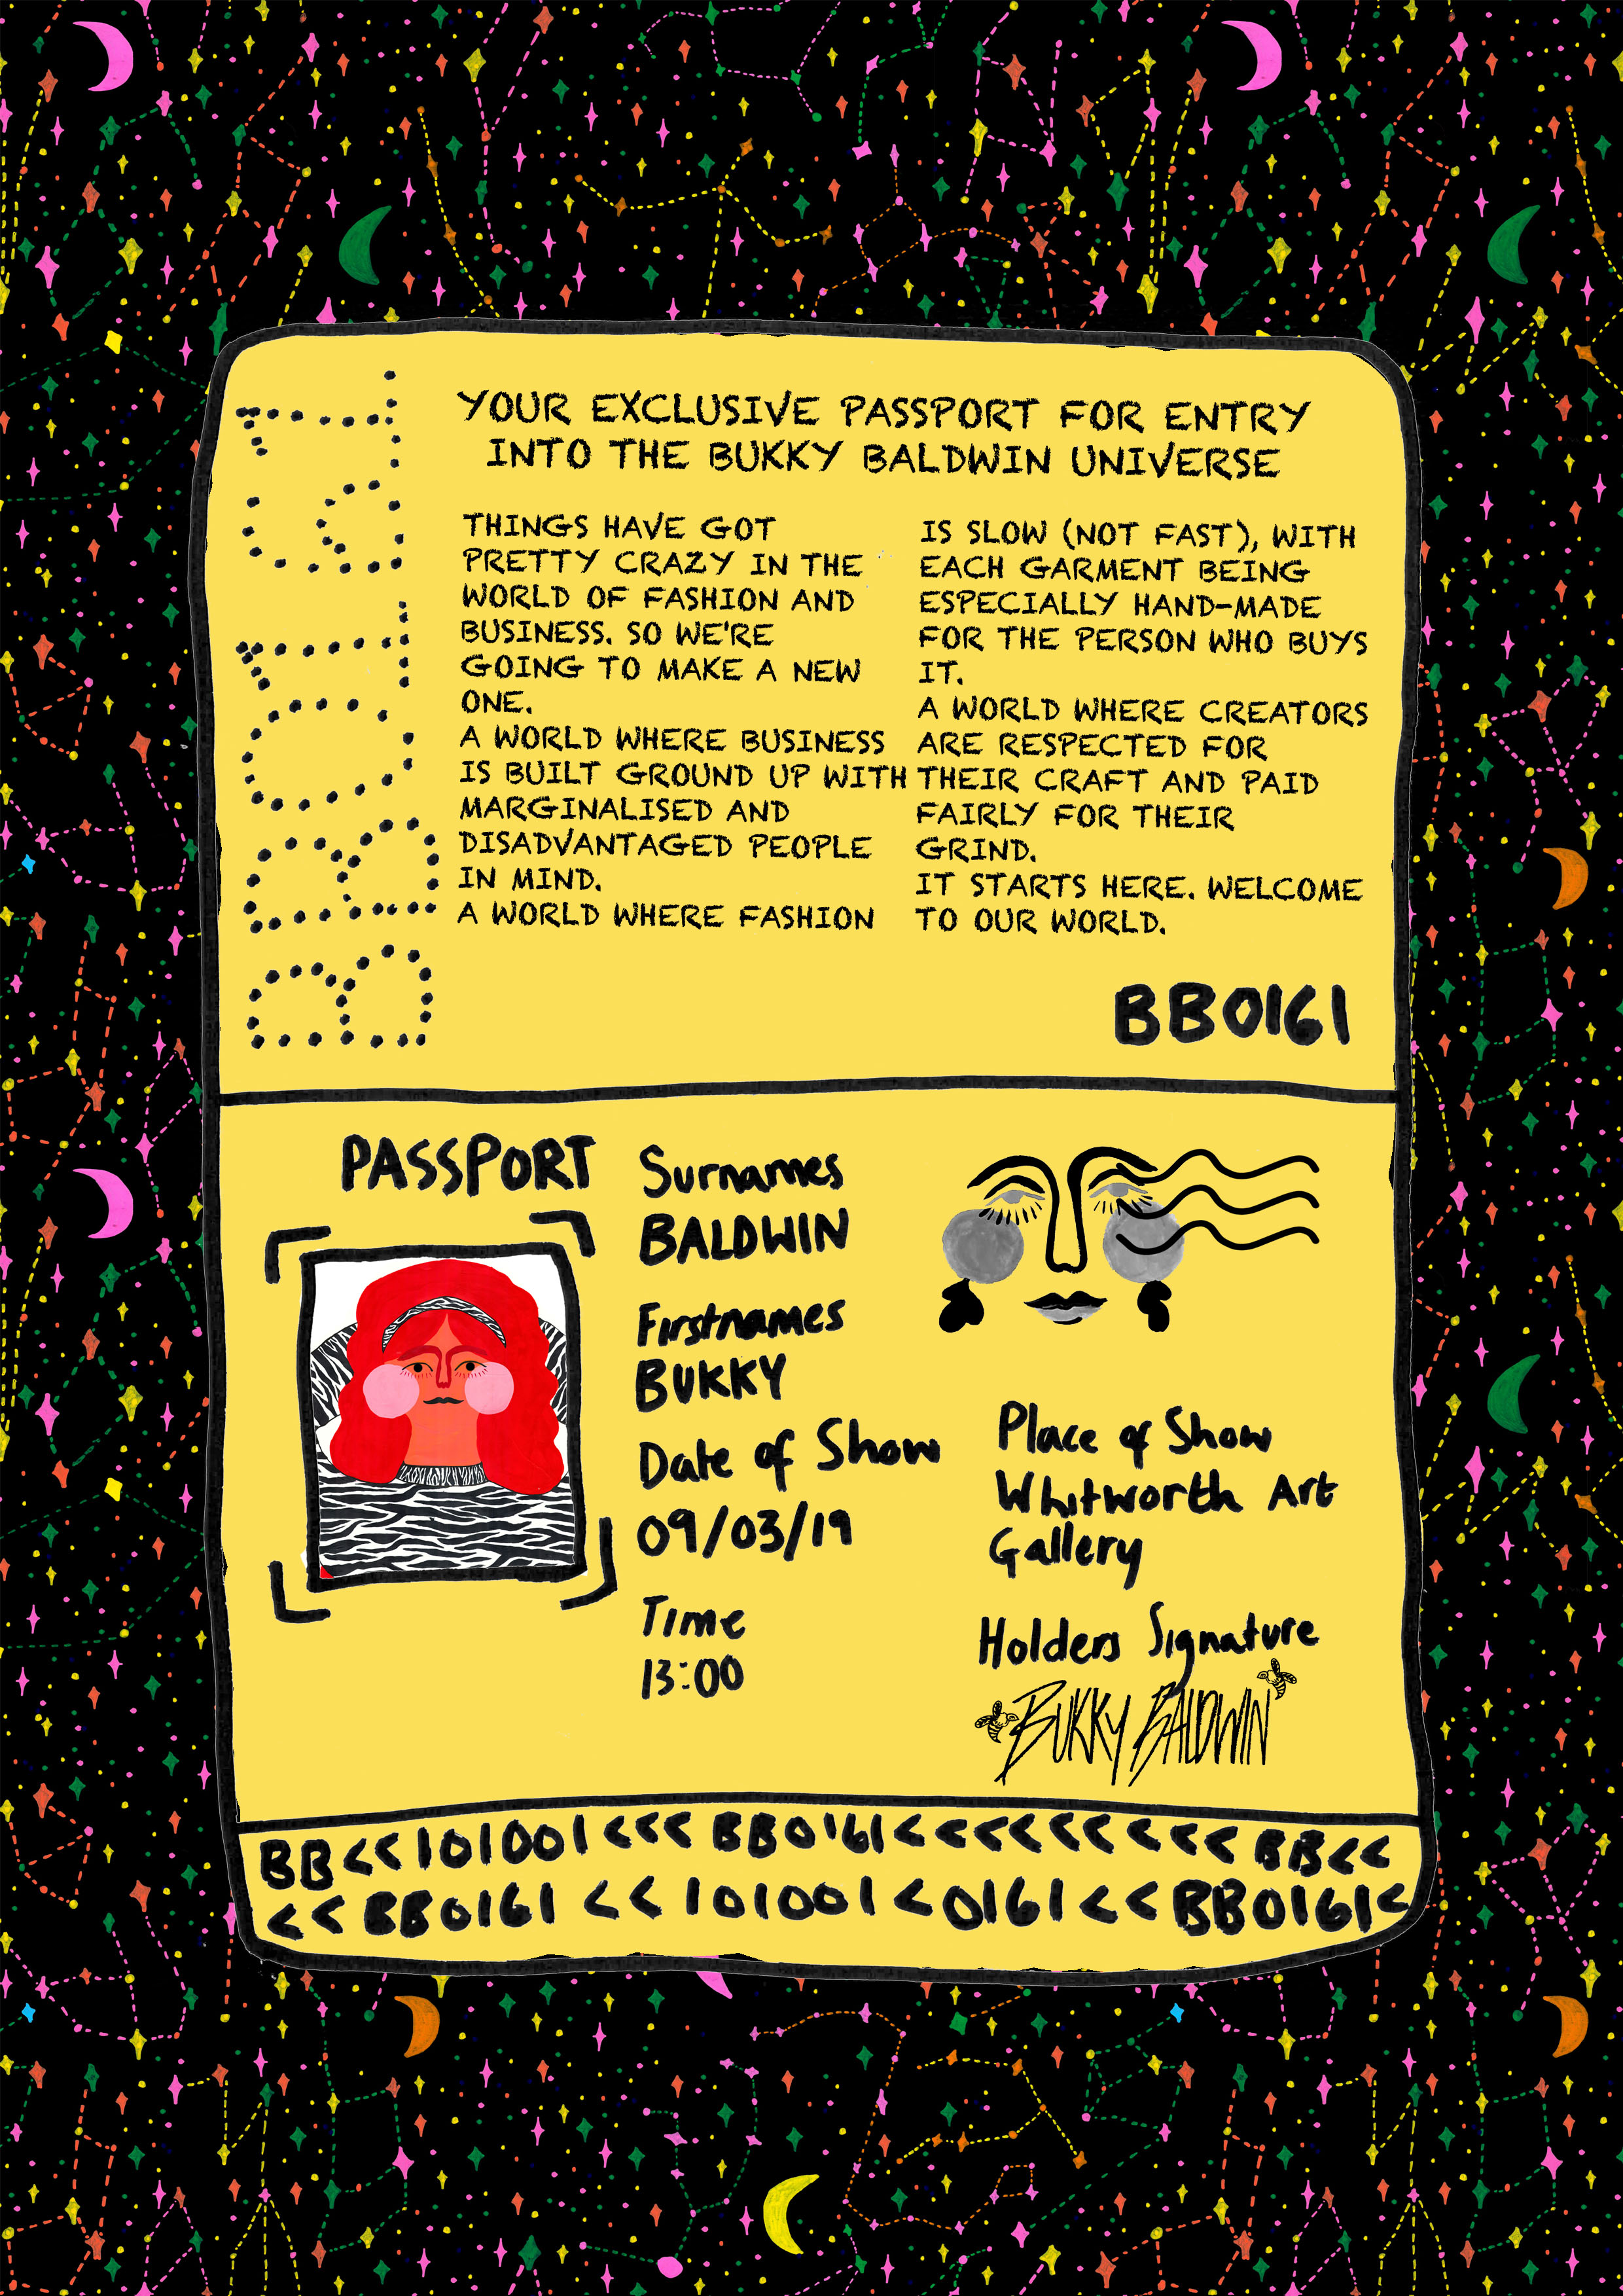 BB0161
YOUR EXCLUSIVE PASSPORT FOR ENTRY
INTO THE BUKKY BALDWIN UNIVERSE
THINGS HAVE GOT
PRETTY CRAZY IN THE
WORLD OF FASHION AND
BUSINESS. SO WE'RE
GOING TO MAKE A NEW
ONE.
A WORLD WHERE BUSINESS
IS BUILT GROUND UP WITH
MARGINALISED AND
DISADVANTAGED PEOPLE
IN MIND.
A WORLD WHERE FASHION
IS SLOW (NOT FAST), WITH
EACH GARMENT BEING
ESPECIALLY HAND-MADE
FOR THE PERSON WHO BUYS
IT.
A WORLD WHERE CREATORS
ARE RESPECTED FOR
THEIR CRAFT AND PAID
FAIRLY FOR THEIR
GRIND.
IT STARTS HERE. WELCOME
TO OUR WORLD.
BB0161
PASSPORT
Surnames
BALDWIN
Firstnames
BUKKY
Date of Show
09/03/19
Time
13:00
Place of Show
Whitworth Art
Gallery
Holders Signature
BUKKY BALDWIN
BB<<101001<<< BB0161<<<<<<<<<< BB<<
<<BB0161 <<101001<0161<<BB0161<